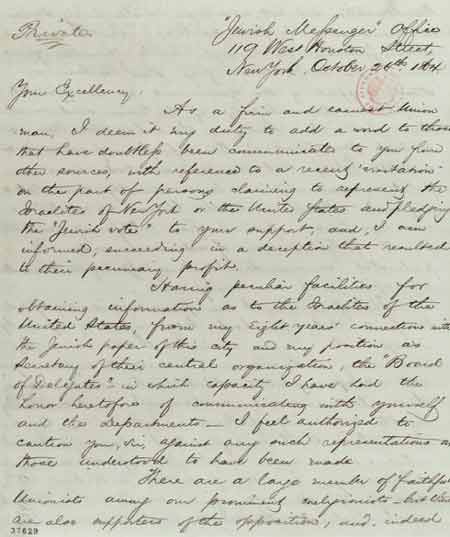 Private
"Jewish Messenger" Office
119 West Houston Street,
New York, October 26th 1864.
Your Excellency,
As a firm and earnest Union
man, I deem it my duty to add a word to those
that have doubtless been communicated to you from
other sources, with reference to a recent "visitation"
on the part of persons claiming to represent the
Israelites of New York or the United States and pledging
the "Jewish vote" to your support, and, I am
informed, succeeding in a deception that resulted
to their pecuniary profit.
Having peculiar facilities for
obtaining information as to the Israelites of the
United States, from my eight years' connection with
the Jewish paper of this city and my position as
Secretary of their central organization, the "Board
of Delegates" in which capacity I have had the
honor heretofore of communicating with yourself
and the departments—I feel authorized to
caution you, Sir, against any such representations as
those understood to have been made.
There are a large number of faithful
Unionists among our prominent coreligionists—but there
are also supporters of the opposition; and indeed
37629